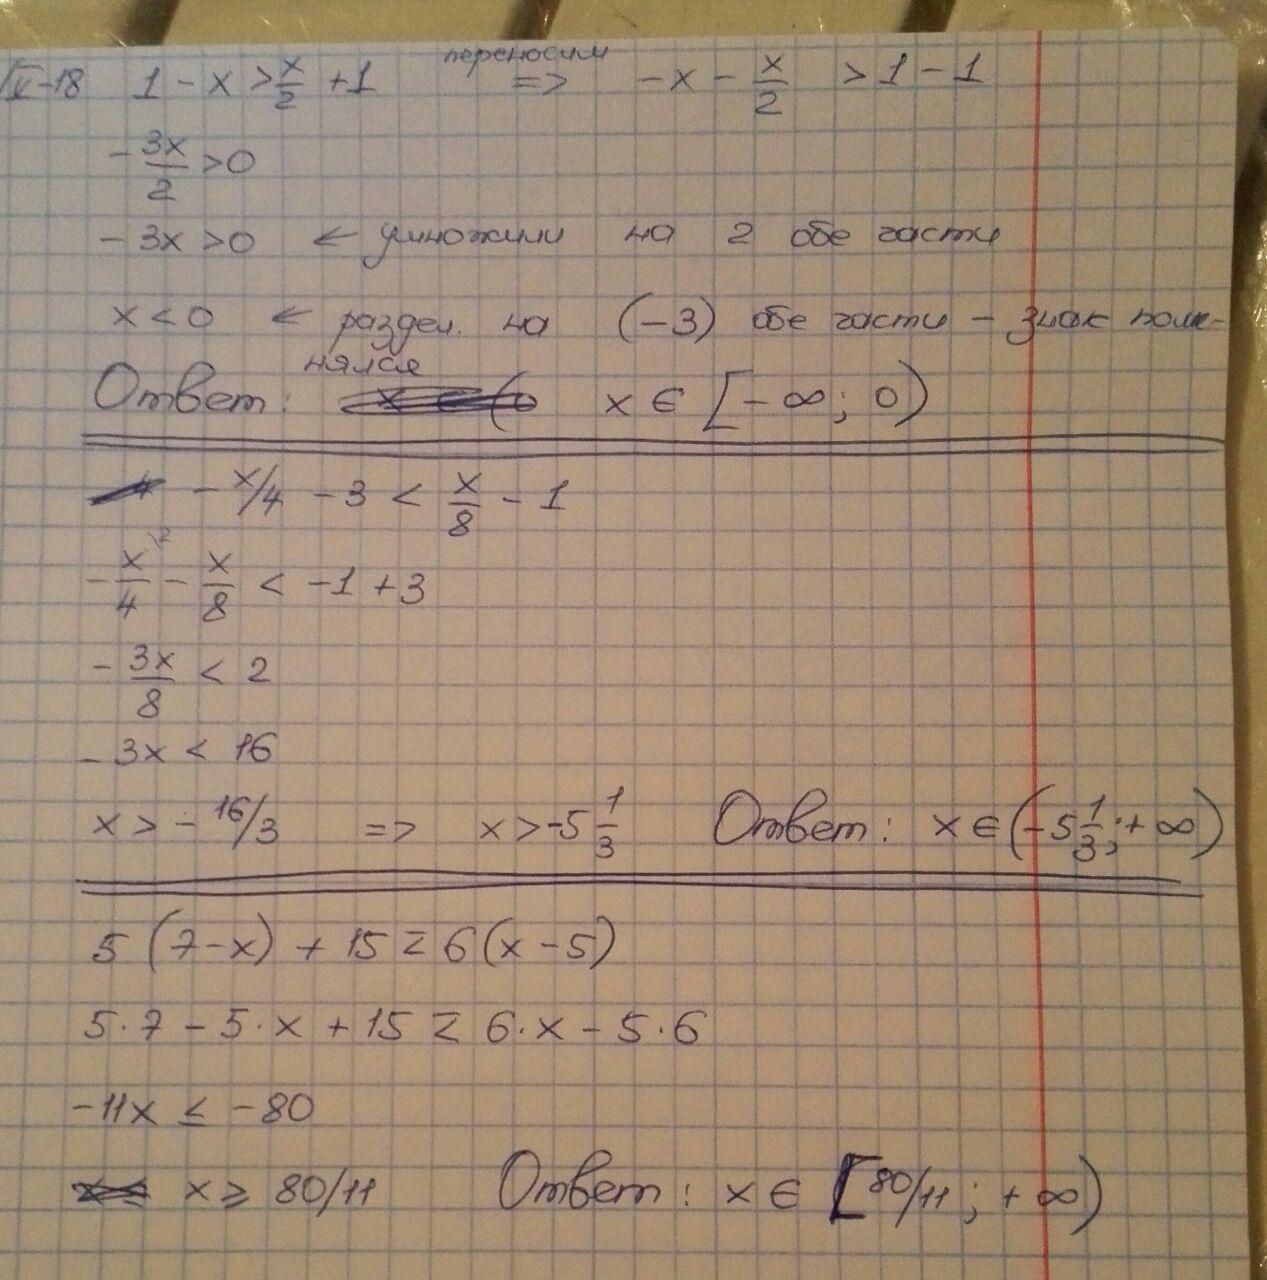 IV-18 1 - x > x/2 + 1 переносим => -x - x/2 > 1 - 1
- 3x/2 > 0
- 3x > 0 ← умножили на 2 обе части
x < 0 ← раздел. на (-3) обе части - знак поме-
нялся
Ответ: x ∈ [-∞; 0)
- x/4 - 3 < x/8 - 1
- x/4 ² - x/8 < -1 + 3
- 3x/8 < 2
- 3x < 16
x > - 16/3 => x > -5 1/3 Ответ: x ∈ (-5 1/3; +∞)
5 (7-x) + 15 ≥ 6 (x - 5)
5·7 - 5·x + 15 ≥ 6·x - 5·6
-11x ≤ -80
x ≥ 80/11 Ответ: x ∈ [80/11; +∞)